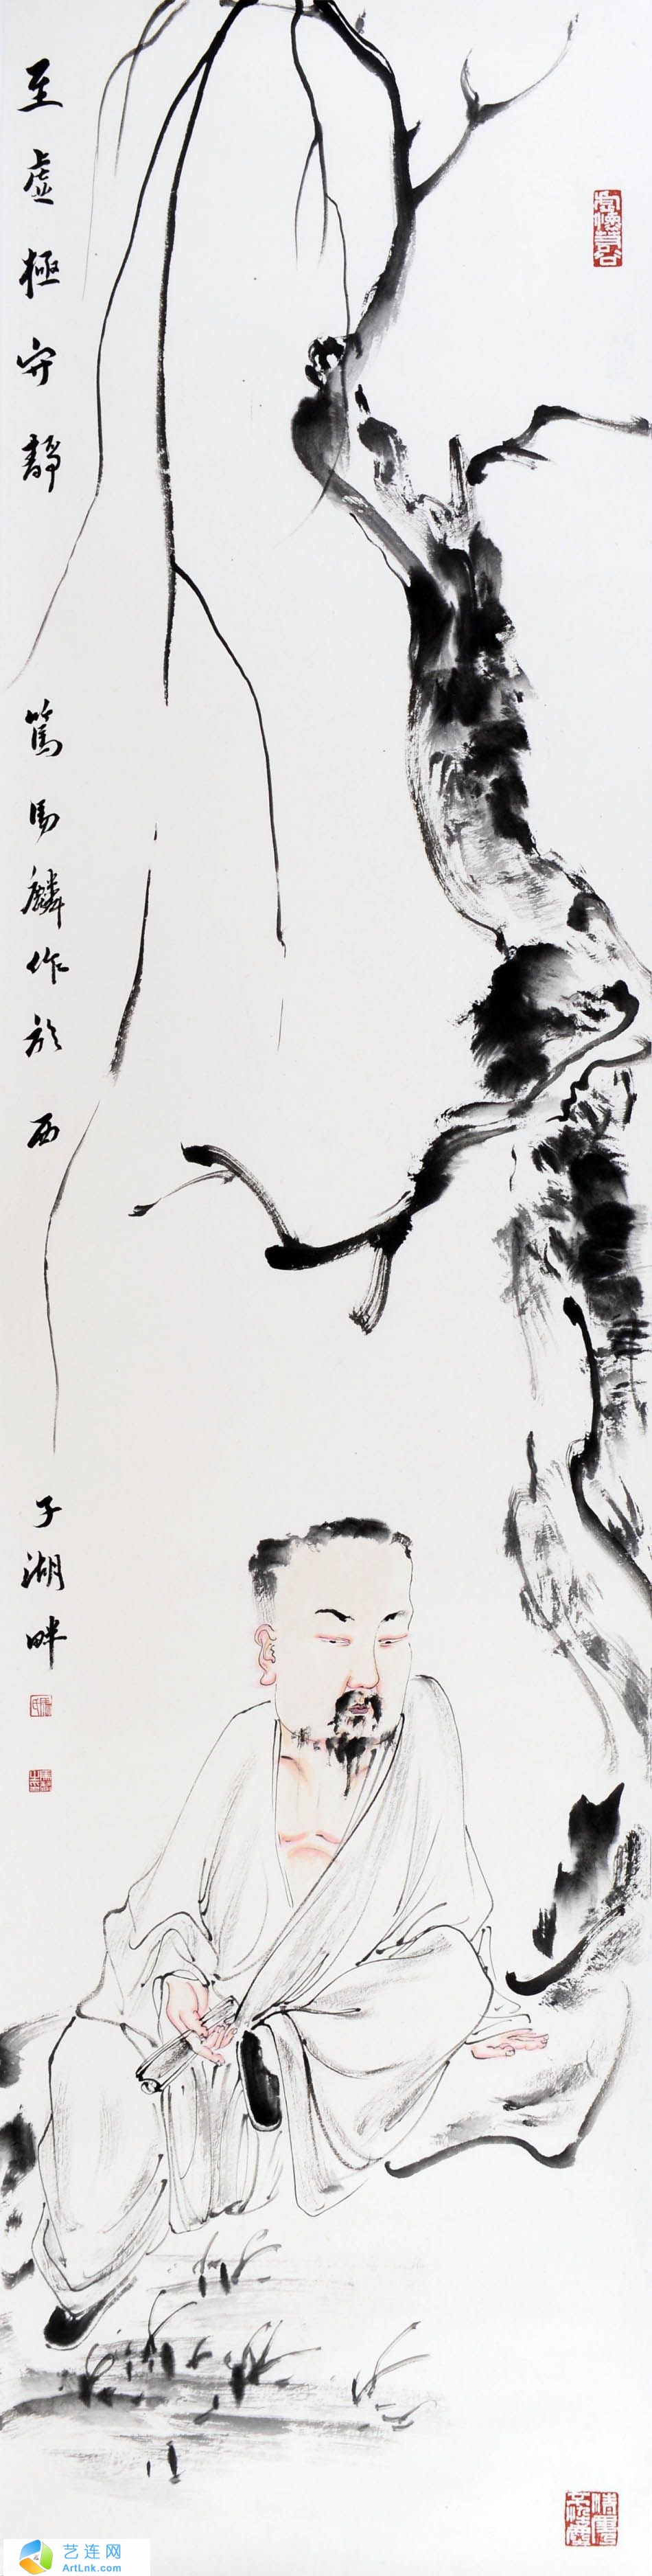 至虚極守靜
篤馬麟作於西
子湖畔
艺连网
ArtLnk.com